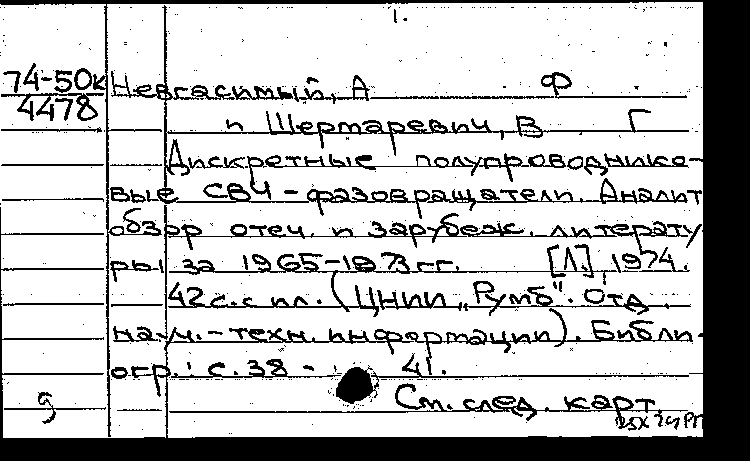 1.
74-50к Невгасимый, А Ф
4478
и Шермаревич, В Г
Дискретные полупроводнико-
вые СВЧ-фазовращатели. Аналит
обзор отеч. и зарубеж. литерату
ры за 1965-1973гг. [Л.], 1974.
42с. с ил. (ЦНИИ „Румб". Отд
науч.-техн. информации). Библи-
огр.: с. 38 - 41.
9 См. след. карт